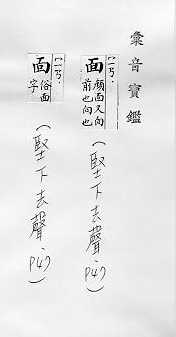 彙音寶鑑
面
顏面又向
前也向也
(堅下去聲·P47)
面
俗面
字
(堅下去聲·P47)